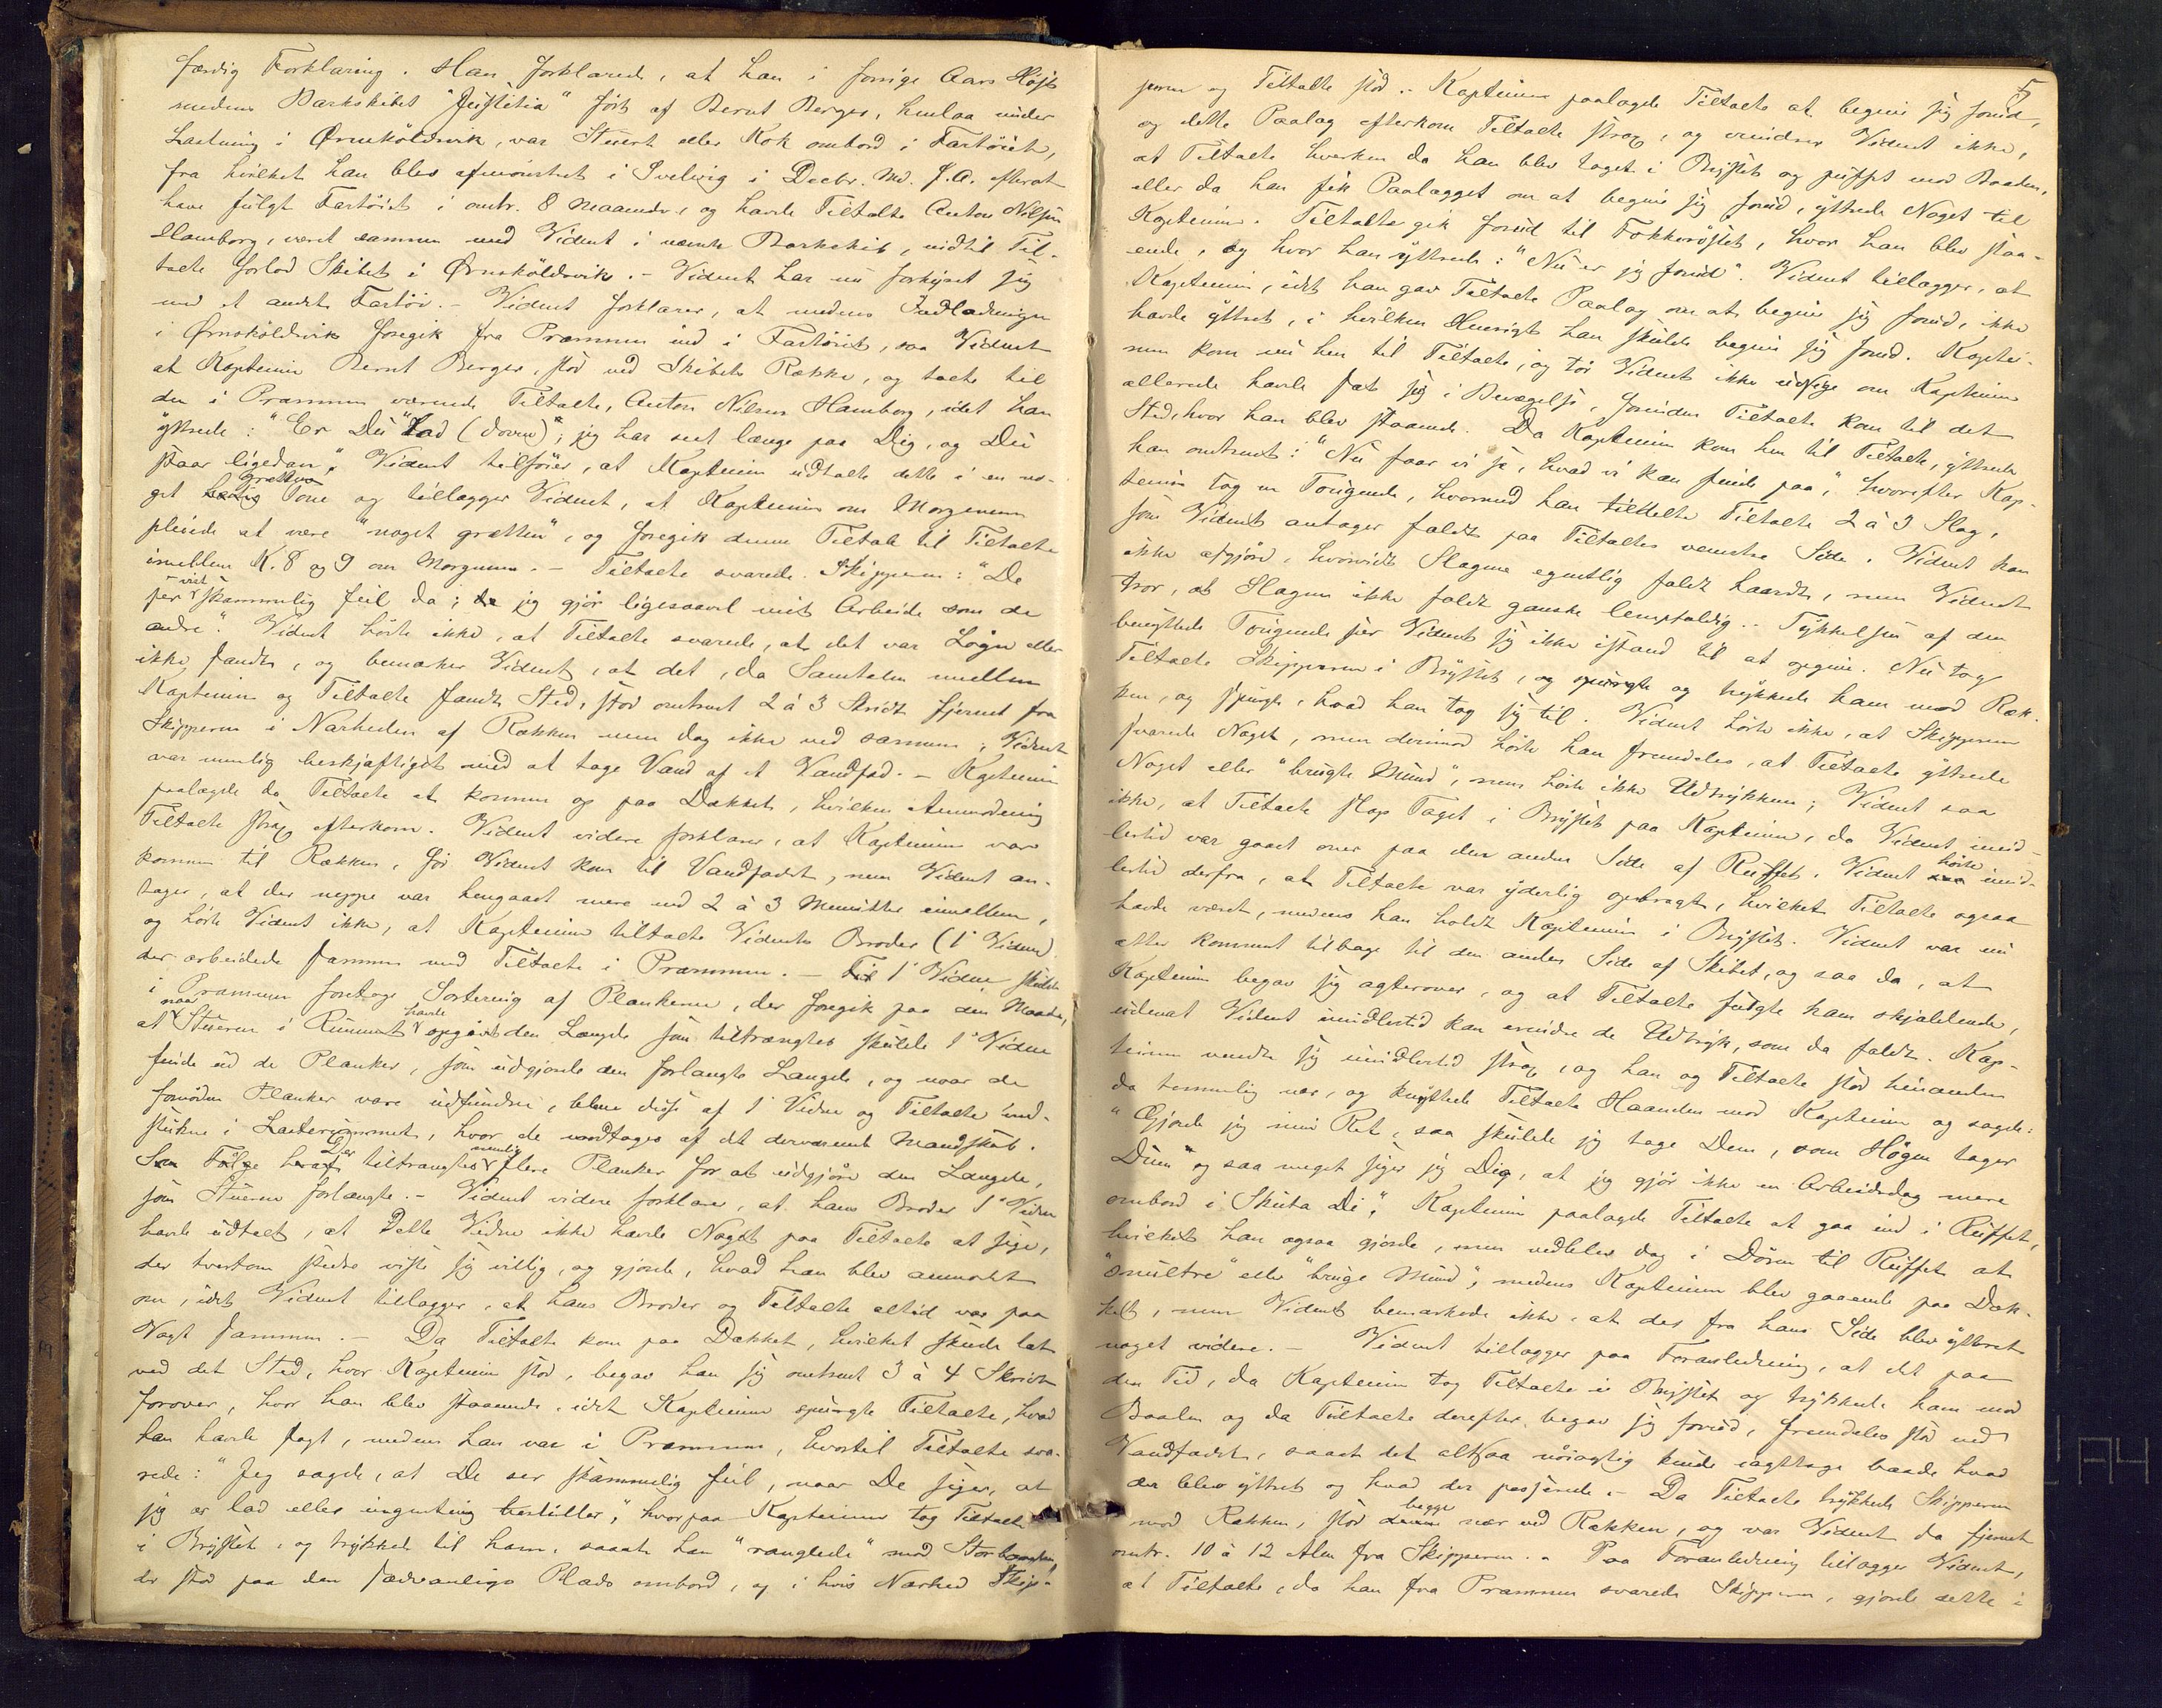 færdig Forklaring. Han forklarede, at han i forrige Aars Høst
medens Barkskibet "Justitia" ført af Bernt Berger, henlaa under
Lastning i Ørnskøldsvik, var Stuert eller Kok ombord i Fartøiet,
fra hvilket han blev afmønstret i Svelvig i Decbr. Md. f.A. efterat
have fulgt Fartøiet i omtr. 8 Maaneder, og havde Tiltalte Anton Nilsen
Hamborg, været sammen med Vidnet i nævnte Barkskib, indtil Til-
talte forlod Skibet i Ørnsköldsvik. - Vidnet har nu forhyret sig
med et andet Fartöi. - Vidnet forklarer, at medens Indladningen
i Ørnsköldsvik foregik fra Prammen ind i Fartöiet, saa Vidnet
at Kapteinen Bernt Berger, stod ved Skibets Række, og talte til
den i Prammen værende Tiltalte, Anton Nilsen Hamborg, idet han
yttrede: "Er Du "Lad (doven)", jeg har seet længe paa Dig, og Du
staar ligedan". Vidnet tilföier, at Kapteinen udtalte dette i en no-
grætten
get Tone og tillægger Vidnet, at Kapteinen om Morgenen
pleiede at være "noget grætten", og foregik denne Tiltale til Tiltalte
imellem Kl. 8 og 9 om Morgenen. - Tiltalte svarede Skipperen: "De
vist
ser skammelig feil da; jeg gjör ligesaavel mit Arbeide som de
andre". Vidnet hörte ikke, at Tiltalte svarede, at det var Lögn eller
ikke sandt, og bemærker Vidnet, at det, da Samtalen mellem
Kapteinen og Tiltalte fandt Sted, stod omtrent 2 à 3 Skridt fjernet fra
Skipperen i Nærheden af Rækken men dog ikke ved samme; Vidnet
var nemlig beskjæftiget med at tage Vand af et Vandfad. - Kapteinen
paalagde da Tiltalte at komme op paa Dækket, hvilken Anmodning
Tiltalte strax efterkom. Vidnet videre forklarer, at Kapteinen var
kommen til Rækken, för Vidnet kom til Vandfadet, men Vidnet an-
tager, at der neppe var hengaaet mere end 2 à 3 Minutter imellem,
og hörte Vidnet ikke, at Kapteinen tiltalte Vidnets Broder (1' Vidne)
der arbeidede sammen med Tiltalte i Prammen. - 1' Vidne skulde
i Prammen foretage Sortering af Plankerne, der foregik paa den Maade,
naar havde
at Stueren i Rummet opgivet den Længde som tiltrængtes skulde 1' Vidne
finde ud de Planker, som udgjorde den forlangte Længde, og naar de
fornødne Planker vare udfundne, bleve disse af 1' Vidne og Tiltalte ind-
stukne i Lasterummet, hvor de modtoges af det derværende Mandskab.
Der nemlig
Som Følge heraf tiltrængtes flere Planker for at udgjöre den Længde,
som Stueren forlangte. - Vidnet videre forklarer, at hans Broder 1' Vidne
havde udtalt, at dette Vidne ikke havde Noget paa Tiltalte at sige,
der tvertom stedse viste sig villig, og gjorde, hvad han blev anmodet
om, idet Vidnet tillægger, at hans Broder og Tiltalte altid var paa
Vagt sammen. - Da Tiltalte kom paa Dækket, hvilket skede tæt
ved det Sted, hvor Kapteinen stod, begav han sig omtrent 3 à 4 Skridt
forover, hvor han blev staaende, idet Kapteinen spurgte Tiltalte, hvad
han havde sagt, medens han var i Prammen, hvortil Tiltalte sva-
rede: "Jeg sagde, at De ser skammelig feil, naar De siger, at
jeg er lad eller ingenting bestiller", hvorpaa Kapteinen tog Tiltalte
i Brystet, og trykket til ham, saaat han "ranglede" mod Storbaaden,
der stod paa den sædvanlige Plads ombord, og i hvis Nærhed Skip-
5
peren og Tiltalte stod. - Kapteinen paalagde Tiltalte at begive sig forud,
og dette Paalæg efterkom Tiltalte strax, og erindrer Vidnet ikke,
at Tiltalte hverken da han blev taget i Brystet og puffet mod Baaden,
eller da han fik Paalægget om at begive sig forud, yttrede Noget til
Kapteinen. Tiltalte gik forud til Fokkerøstet, hvor han blev staa-
ende, og hvor han yttrede: "Nu er jeg forud". Vidnet tillægger, at
Kapteinen, idet han gav Tiltalte Paalæg om at begive sig forud, ikke
havde yttret, i hvilken Hensigt han skulde begive sig forud. Kaptei-
nen kom nu hen til Tiltalte, og tör Vidnet ikke udsige om Kapteinen
allerede havde sat sig i Bevægelse, forinden Tiltalte kom til det
Sted, hvor han blev staaende. Da Kapteinen kom hen til Tiltalte, yttrede
han omtrent: "Nu faar vi se, hvad vi kan finde paa", hvorefter Kap-
teinen tog en Tougende, hvormed han tildelte Tiltalte 2 à 3 Slag,
som Vidnet antager faldt paa Tiltaltes venstre Side. Vidnet kan
ikke afgjöre, hvorvidt Slagene egentlig faldt haardt, men Vidnet
tror, at Slagene ikke faldt ganske lempfældig. - Tykkelsen af den
benyttede Tougende ser Vidnet sig ikke istand til at opgive. Nu tog
Tiltalte Skipperen i Brystet, og spurgte og trykkede ham mod Ræk-
ken, og spurgte, hvad han tog sig til. Vidnet hörte ikke, at Skipperen
svarede Noget, men derimod hörte han fremdeles, at Tiltalte yttrede
Noget eller "brugte Mund", men hörte ikke Udtrykkene; Vidnet saa
ikke, at Tiltalte slap Taget i Brystet paa Kapteinen, da Vidnet imid-
lertid var gaaet over paa den anden Side af Ruffet. Vidnet hörte imid-
lertid derfra, at Tiltalte var yderlig opbragt, hvilket Tiltalte ogsaa
havde været, medens han holdt Kapteinen i Brystet. Vidnet var nu
atter kommet tilbage til den anden Side af Skibet, og saa da, at
Kapteinen begav sig agterover, og at Tiltalte fulgte ham skjældende,
udenat Vidnet imidlertid kan erindre de Udtryk, som da faldt. Kap-
teinen vendte sig imidlertid strax, og han og Tiltalte stod hinanden
da temmelig nær, og knyttede Tiltalte Haanden mod Kapteinen og sagde:
"Gjorde jeg min Ret, saa skulde jeg tage Dem, som Högen tager
Duen" og saa meget siger jeg Dig, at jeg gjör ikke en Arbeidsdag mere
ombord i Skuta Di". Kapteinen paalagde Tiltalte at gaa ind i Ruffet,
hvilket han ogsaa gjorde, men vedblev dog i Dören til Ruffet at
"smultre" eller "bruge Mund", medens Kapteinen blev gaaende paa Dæk-
ket, men Vidnet bemærkede ikke, at der fra hans Side blev yttret
noget videre. - Vidnet tillægger paa Foranledning, at det paa
den Tid, da Kapteinen tog Tiltalte i Brystet og trykkede ham mod
Baaden og da Tiltalte derefter begav sig forud, fremdeles stod ved
Vandfadet, saaat det altsaa nöiagtig kunde iagttage baade hvad
der blev yttret og hvad der passerede. - Da Tiltalte trykkede Skipperen
begge
mod Rækken, stod nær ved Rækken, og var Vidnet da fjernet
omtr. 10 à 12 Alen fra Skipperen. - Paa Foranledning tillægger Vidnet,
at Tiltalte, da han fra Prammen svarede Skipperen, gjorde dette i